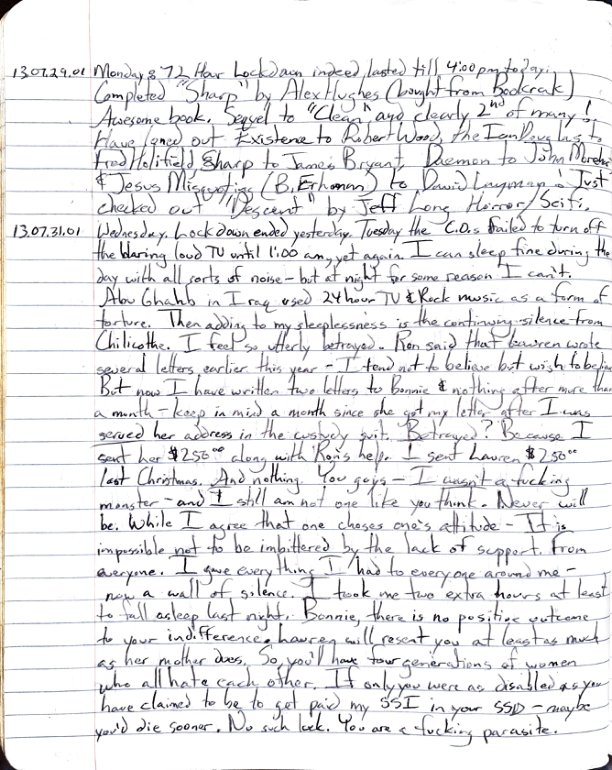 13.07.29.01 Monday: 72 Hour Lockdown indeed lasted till 4:00pm today.
Completed "Sharp" by Alex Hughes (bought from Bookrak)
Awesome book. Sequel to "Clean" and clearly 2nd of many!
Have loned out Existence to Robert Wood, the Ian Douglas to
Fred Holifield Sharp to James Bryant, Daemon to John
& Jesus Misquoting (B. Erhman) to David Layman! Just
checked out "Descent" by Jeff Long Horror/Scifi.
13.07.31.01 Wednesday. Lockdown ended yesterday. Tuesday the C.O.s failed to turn off
the blaring loud TV until 1:00 am, yet again. I can sleep fine during the
day with all sorts of noise - but at night for some reason I can't.
Abu Ghahb in Iraq used 24 hour TV & Rock music as a form of
torture. Then adding to my sleeplessness is the continuing silence from
Chilicothe. I feel so utterly betrayed. Ron said that Lauren wrote
several letters earlier this year - I tend not to believe but wish to believe
But now I have written two letters to Bonnie & nothing after more than
a month - keep in mind a month since she got my letter after I was
served her address in the custody suit. Betrayed? Because I
sent her $250.00 along with Ron's help. I sent Lauren $250.00
last Christmas. And nothing. You guys - I wasn't a fucking
monster - and I still am not one like you think. Never will
be. While I agree that one choses one's attitude - It is
impossible not to be imbittered by the lack of support from
everyone. I gave everything I had to everyone around me -
now a wall of silence. I took me two extra hours at least
to fall asleep last night. Bonnie, there is no positive outcome
to your indifference. Lauren will resent you at least as much
as her mother does. So, you'll have four generations of women
who all hate each other. If only you were as disabled as you
have claimed to be to get paid my SSI in your SSD - maybe
you'd die sooner. No such luck. You are a fucking parasite.